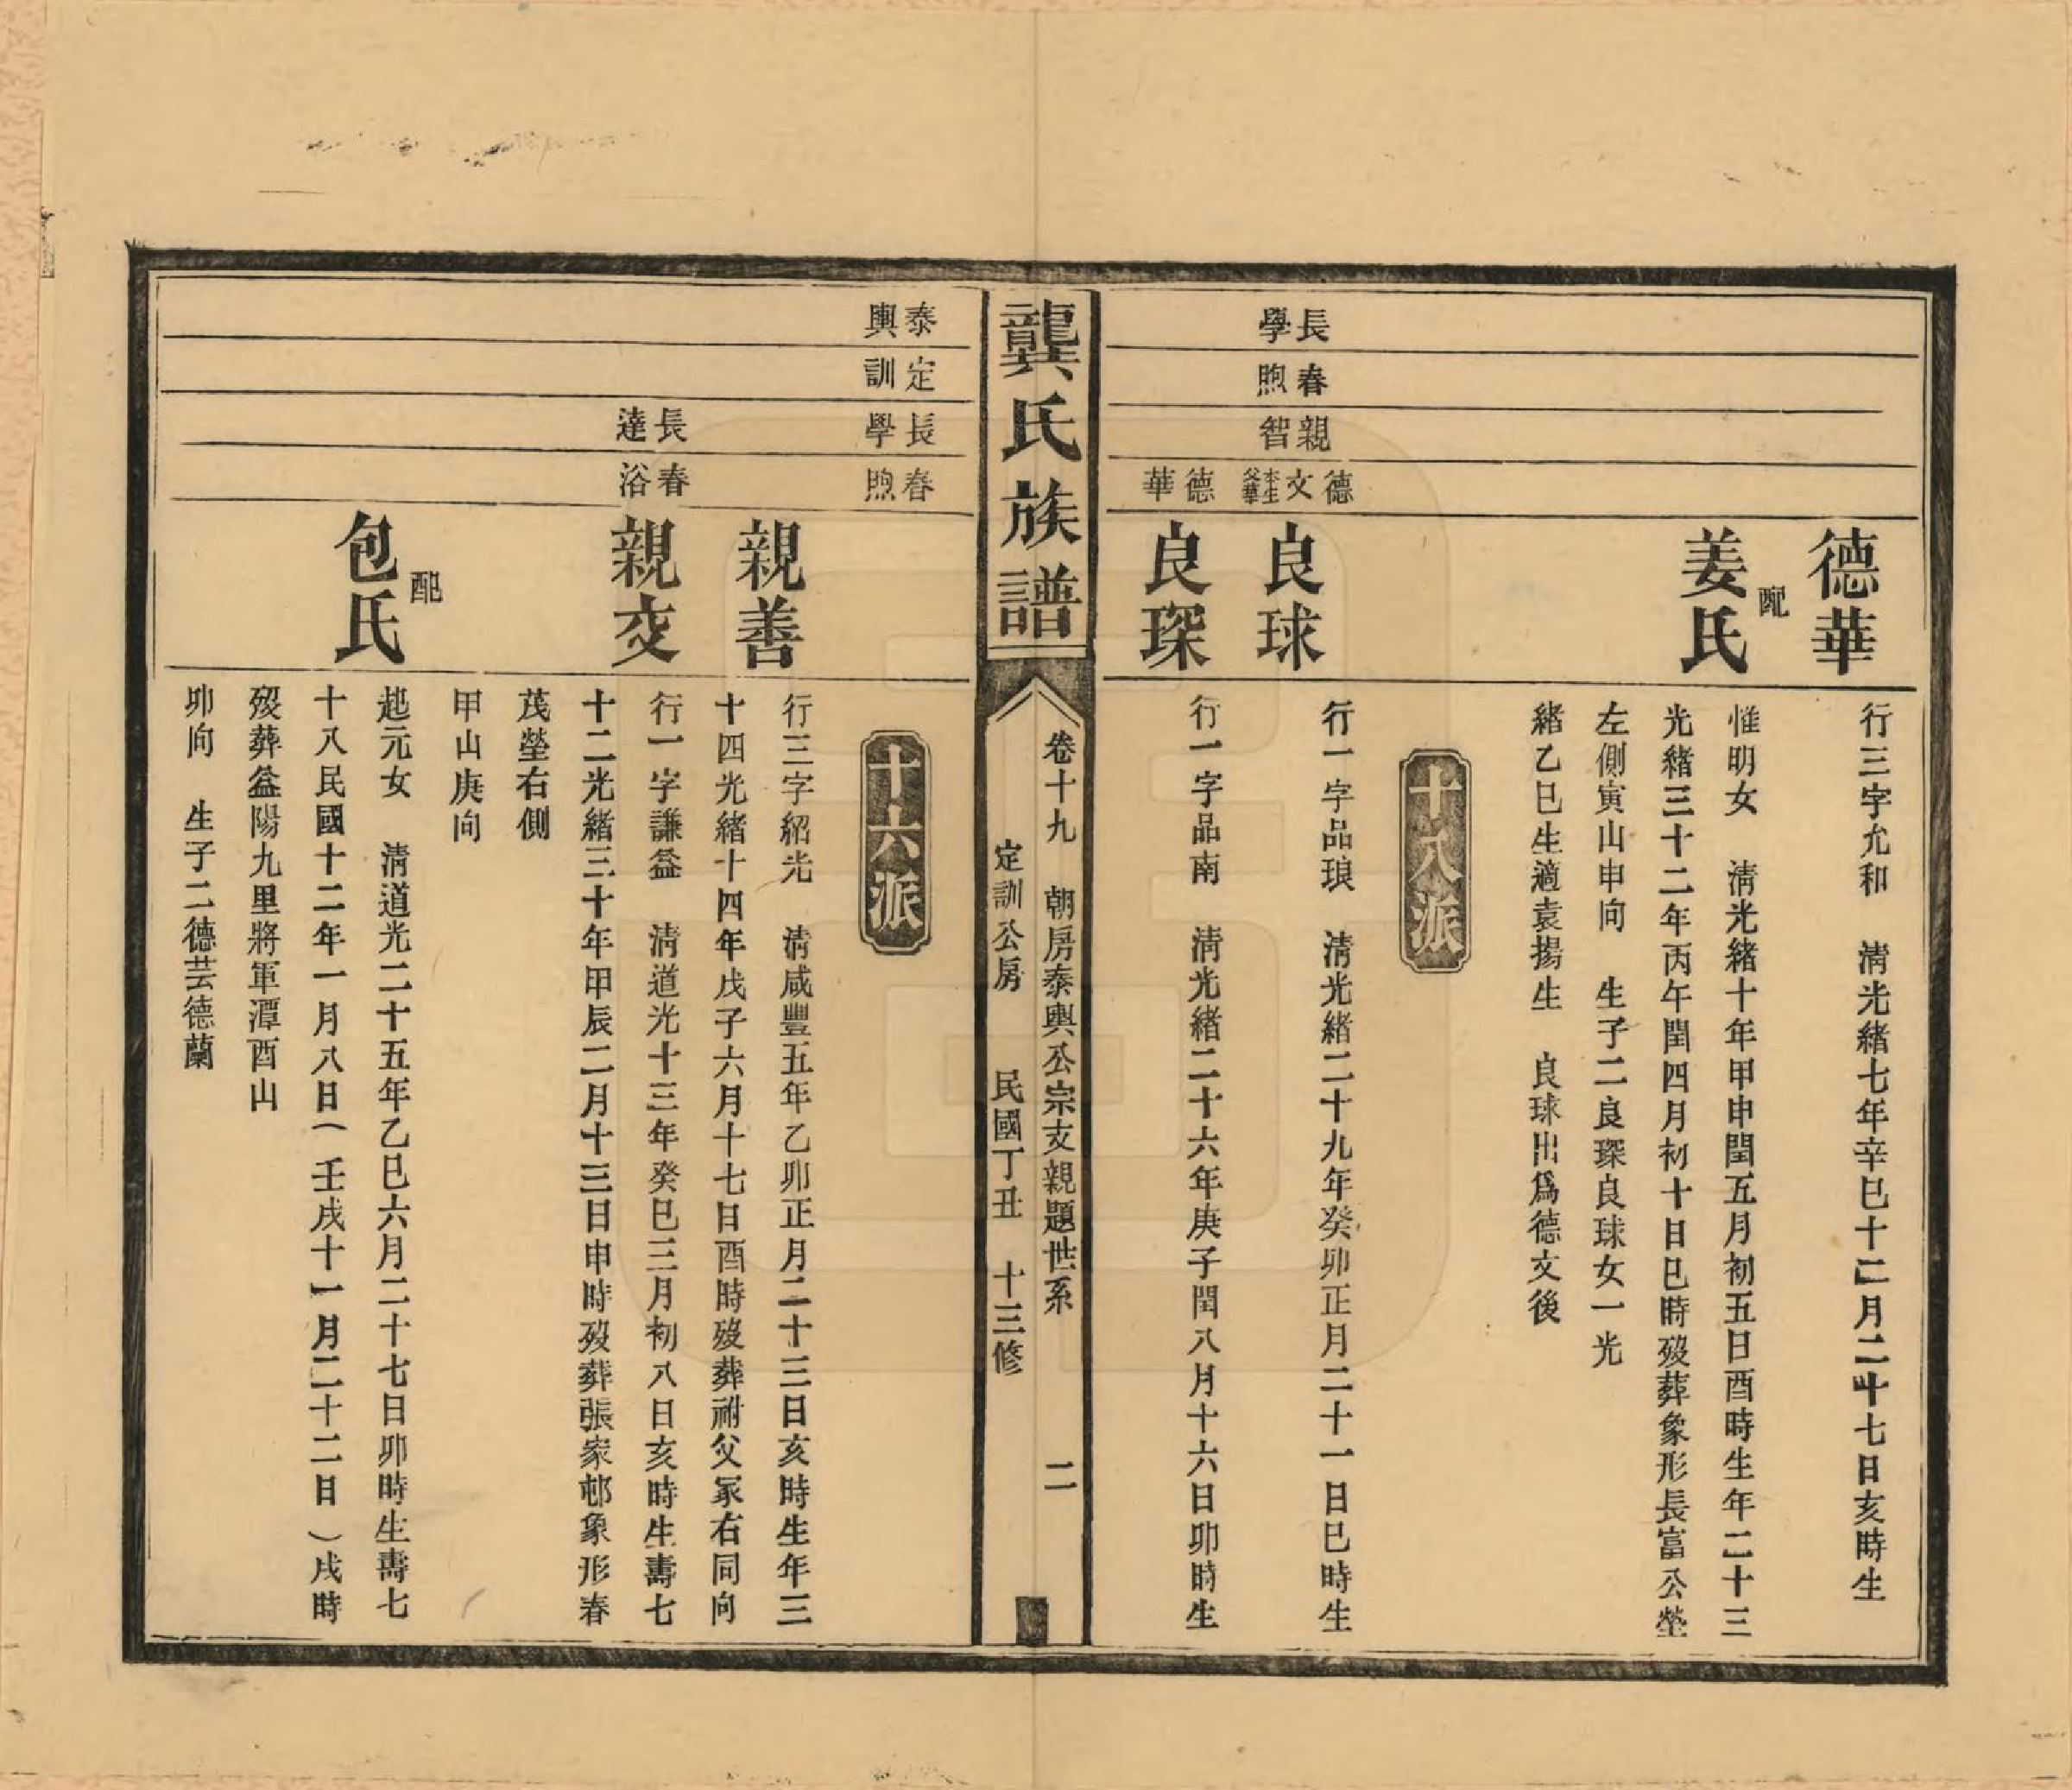 德華
行三字允和　清光緒七年辛巳十二月二十七日亥時生
配
姜氏
惟明女　清光緒十年甲申閏五月初五日酉時生年二十三
光緒三十二年丙午閏四月初十日巳時歿葬象形長富公塋
左側寅山申向　生子二良琛良球女一光
緒乙巳生適袁揚生　良球出爲德文後
十八派
長學
春煦
親智
德文
本生父華
良球
行一字品琅　清光緒二十九年癸卯正月二十一日巳時生
德華
良琛
行一字品南　清光緒二十六年庚子閏八月十六日卯時生
龔氏族譜
卷十九　朝房泰輿公宗支親題世系　二
定訓公房　民國丁丑　十三修
泰輿
定訓
長學
春煦
十六派
親善
行三字紹光　清咸豐五年乙卯正月二十三日亥時生年三
十四光緒十四年戊子六月十七日酉時歿葬祔父冢右同向
長達
春浴
親交
行一字謙益　清道光十三年癸巳三月初八日亥時生壽七
十二光緒三十年甲辰二月十三日申時歿葬張家邨象形春
茂塋右側
甲山庚向
配
包氏
起元女　清道光二十五年乙巳六月二十七日卯時生壽七
十八民國十二年一月八日（壬戌十一月二十二日）戌時
歿葬益陽九里將軍潭酉山
卯向　生子二德芸德蘭